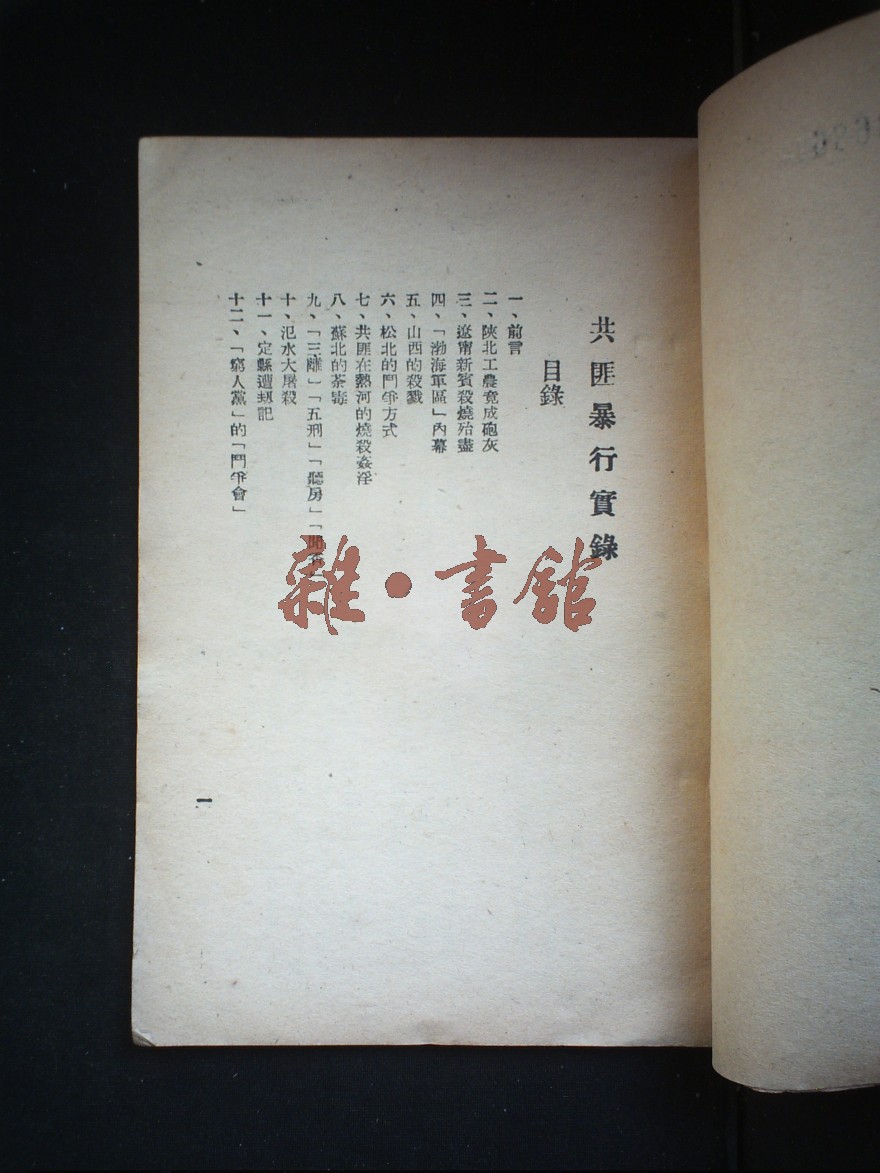 共匪暴行實錄
目錄
一、前言
二、陝北工農竟成砲灰
三、遼甯新賓殺燒殆盡
四、「渤海軍區」內幕
五、山西的殺戮
六、松北的鬥爭方式
七、共匪在熱河的燒殺姦淫
八、蘇北的荼毒
九、「三離」「五刑」「聽房」「
十、氾水大屠殺
十一、定縣遭刼記
十二、「窮人黨」的「鬥爭會」
一
雜•書館